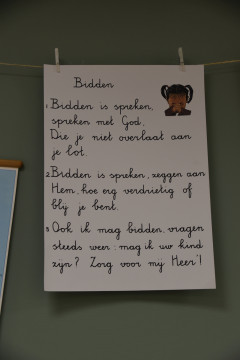 Bidden
1. Bidden is spreken,
spreken met God.
Die je niet overlaat aan
je lot.
2. Bidden is spreken, zeggen aan
Hem, hoe erg verdrietig of
blij je bent.
3. Ook ik mag bidden, vragen
steeds weer: mag ik uw kind
zijn? Zorg voor my Heer'!